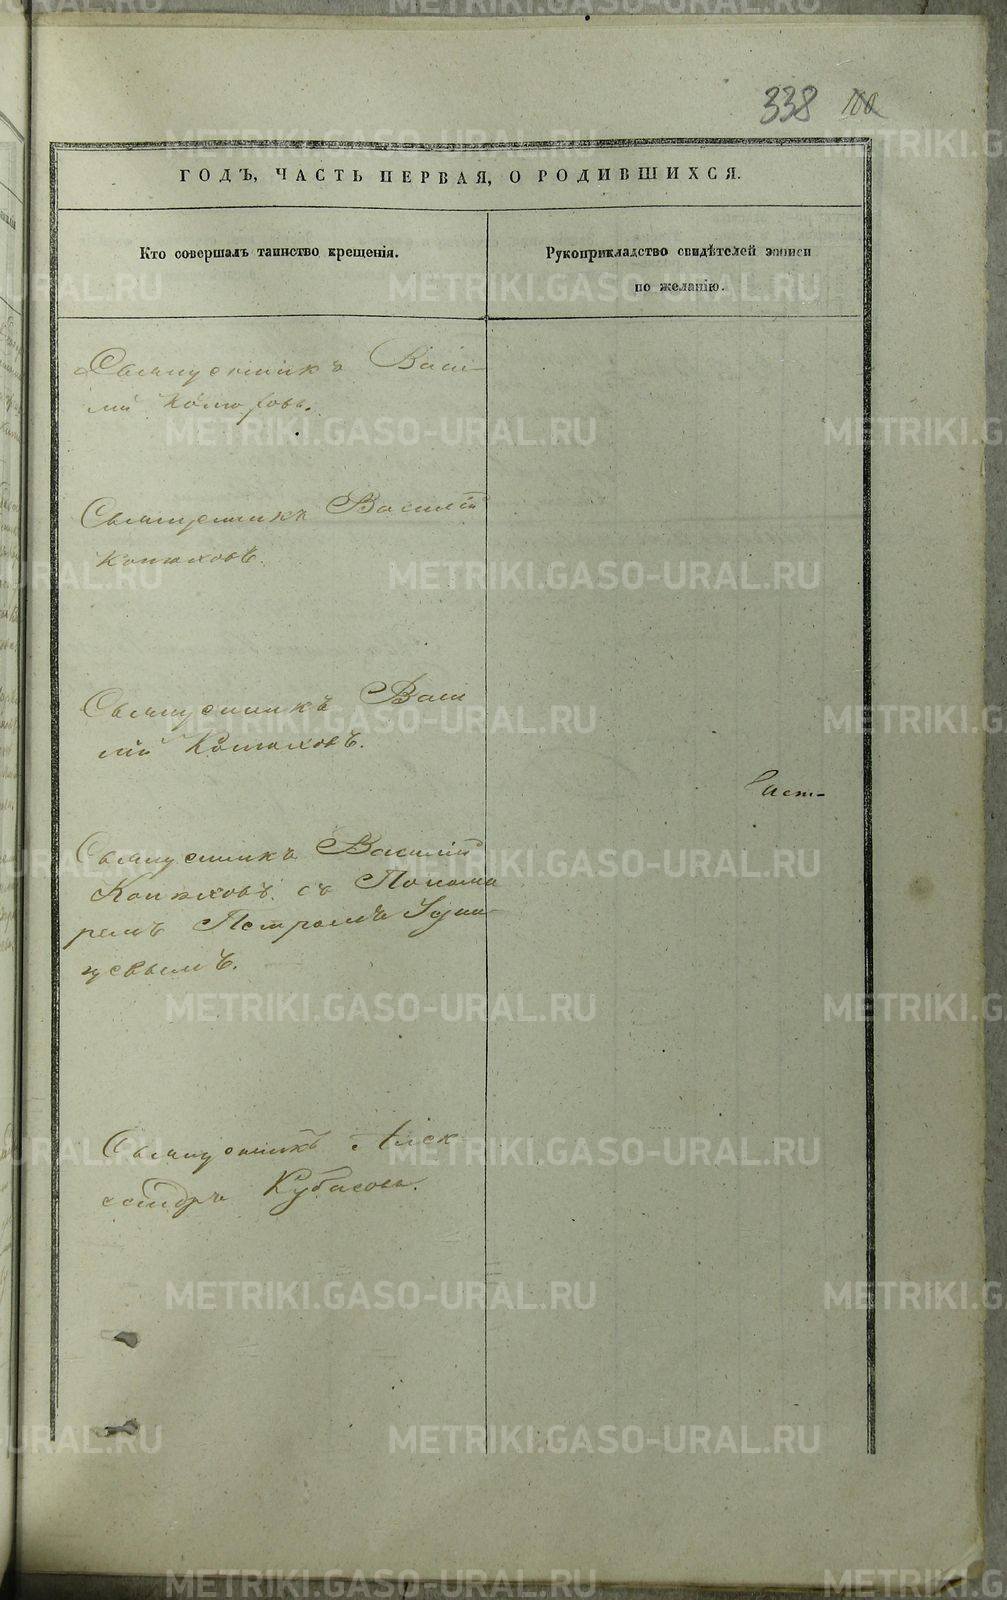 338 100
ГОДЪ, ЧАСТЬ ПЕРВАЯ, О РОДИВШИХСЯ.
Кто совершалъ таинство крещенія.
Рукоприкладство свидѣтелей записи
по желанію.
Священникъ Васи-
лій Конюховъ.
Священникъ Василій
Конюховъ.
Священникъ Васи
лій Конюховъ.
Священникъ Василій
Конюховъ съ Понома
ремъ Петромъ
цевымъ.
Священникъ Алек
сандръ Кубасовъ.
METRIKI.GASO-URAL.RU